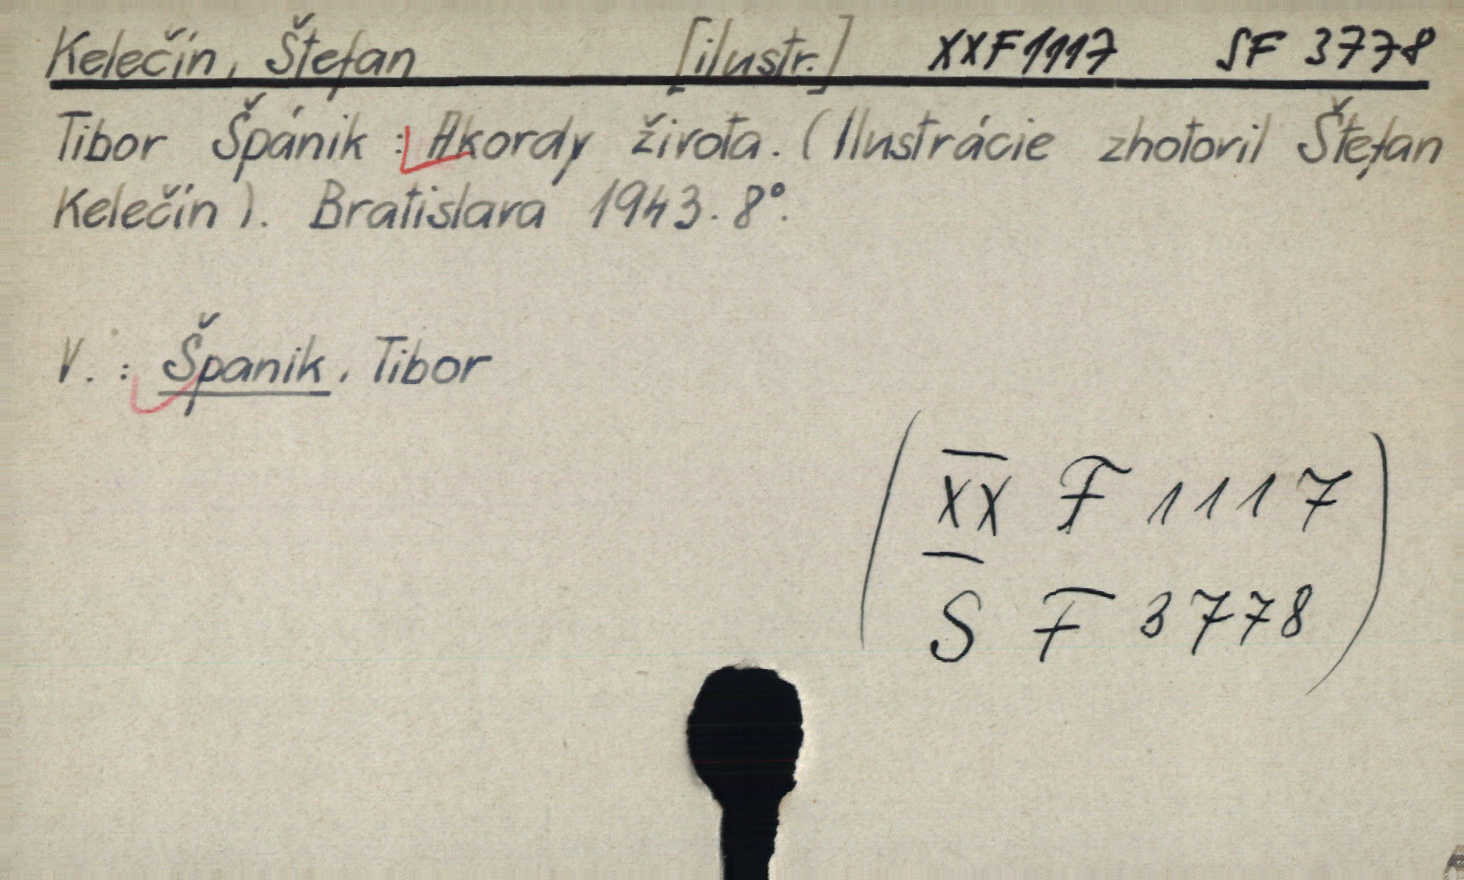 Kelečín, Štefan [ilustr.] XXF1117 SF 3778
Tibor Špánik : Akordy života. (Ilustrácie zhotovil Štefan
Kelečín). Bratislava 1943. 8°.
V. : Španik, Tibor
(XX F 1117
S F 3778)